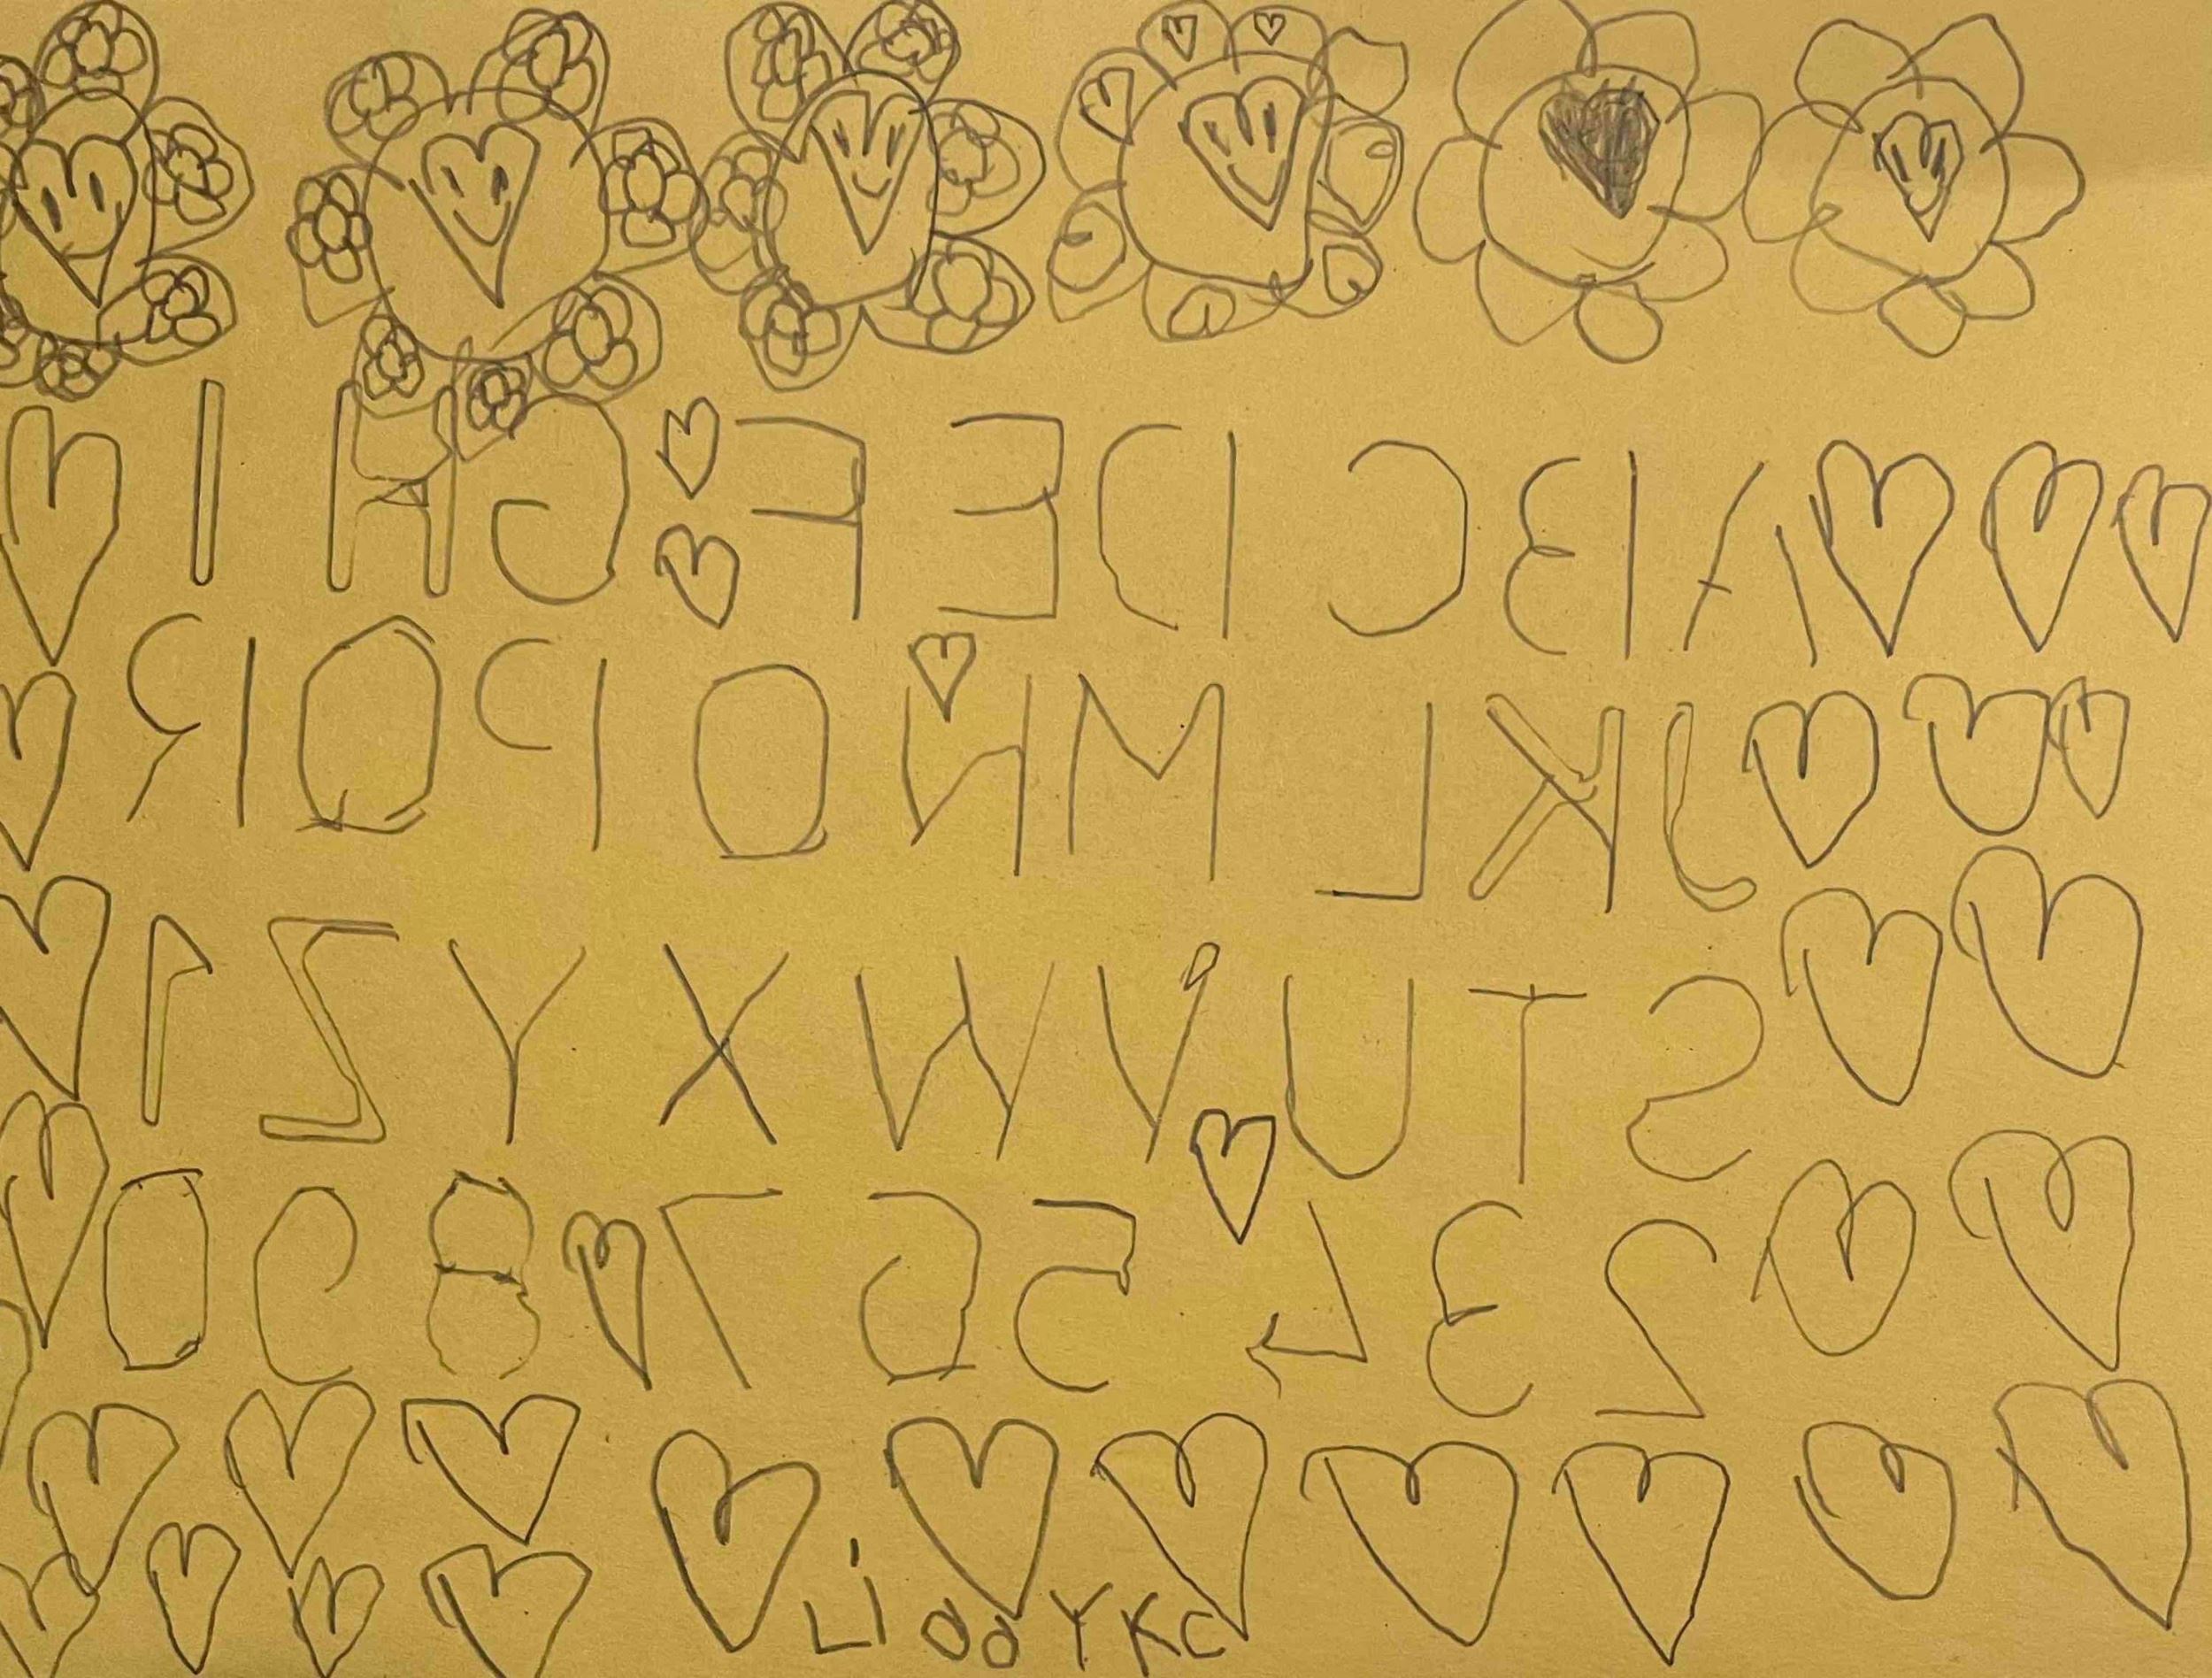 A B C D E F G H I
J K L M N O P Q R
S T U V W X Y Z 1
2 3 4 5 6 7 8 9 0
LiddY KC